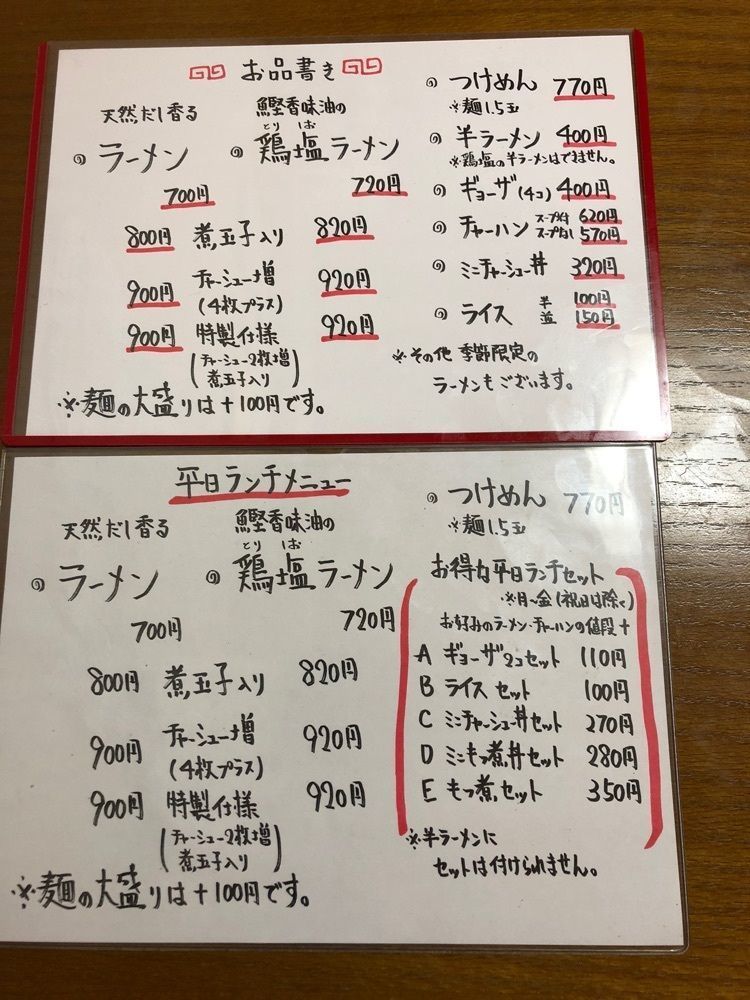 お品書き
天然だし香る
ラーメン
700円
鰹香味油の
とり しお
鶏塩ラーメン
720円
800円 煮玉子入り 820円
900円 チャーシュー増 920円
(4枚プラス)
900円 特製仕様 920円
(チャーシュー2枚増
煮玉子入り)
※麺の大盛りは+100円です。
つけめん 770円
※麺1.5玉
半ラーメン 400円
※鶏塩の半ラーメンはできません。
ギョーザ(4コ) 400円
チャーハン スープ付 620円
スープなし 570円
ミニチャーシュー丼 320円
ライス 半 100円
並 150円
※その他 季節限定の
ラーメンもございます。
平日ランチメニュー
天然だし香る
ラーメン
700円
鰹香味油の
とり しお
鶏塩ラーメン
720円
800円 煮玉子入り 820円
900円 チャーシュー増 920円
(4枚プラス)
900円 特製仕様 920円
(チャーシュー2枚増
煮玉子入り)
※麺の大盛りは+100円です。
つけめん 770円
※麺1.5玉
お得な平日ランチセット
※月～金(祝日は除く)
お好みのラーメン・チャーハンの値段+
A ギョーザ2コセット 110円
B ライスセット 100円
C ミニチャーシュー丼セット 270円
D ミニもつ煮丼セット 280円
E もつ煮セット 350円
※半ラーメンに
セットは付けられません。